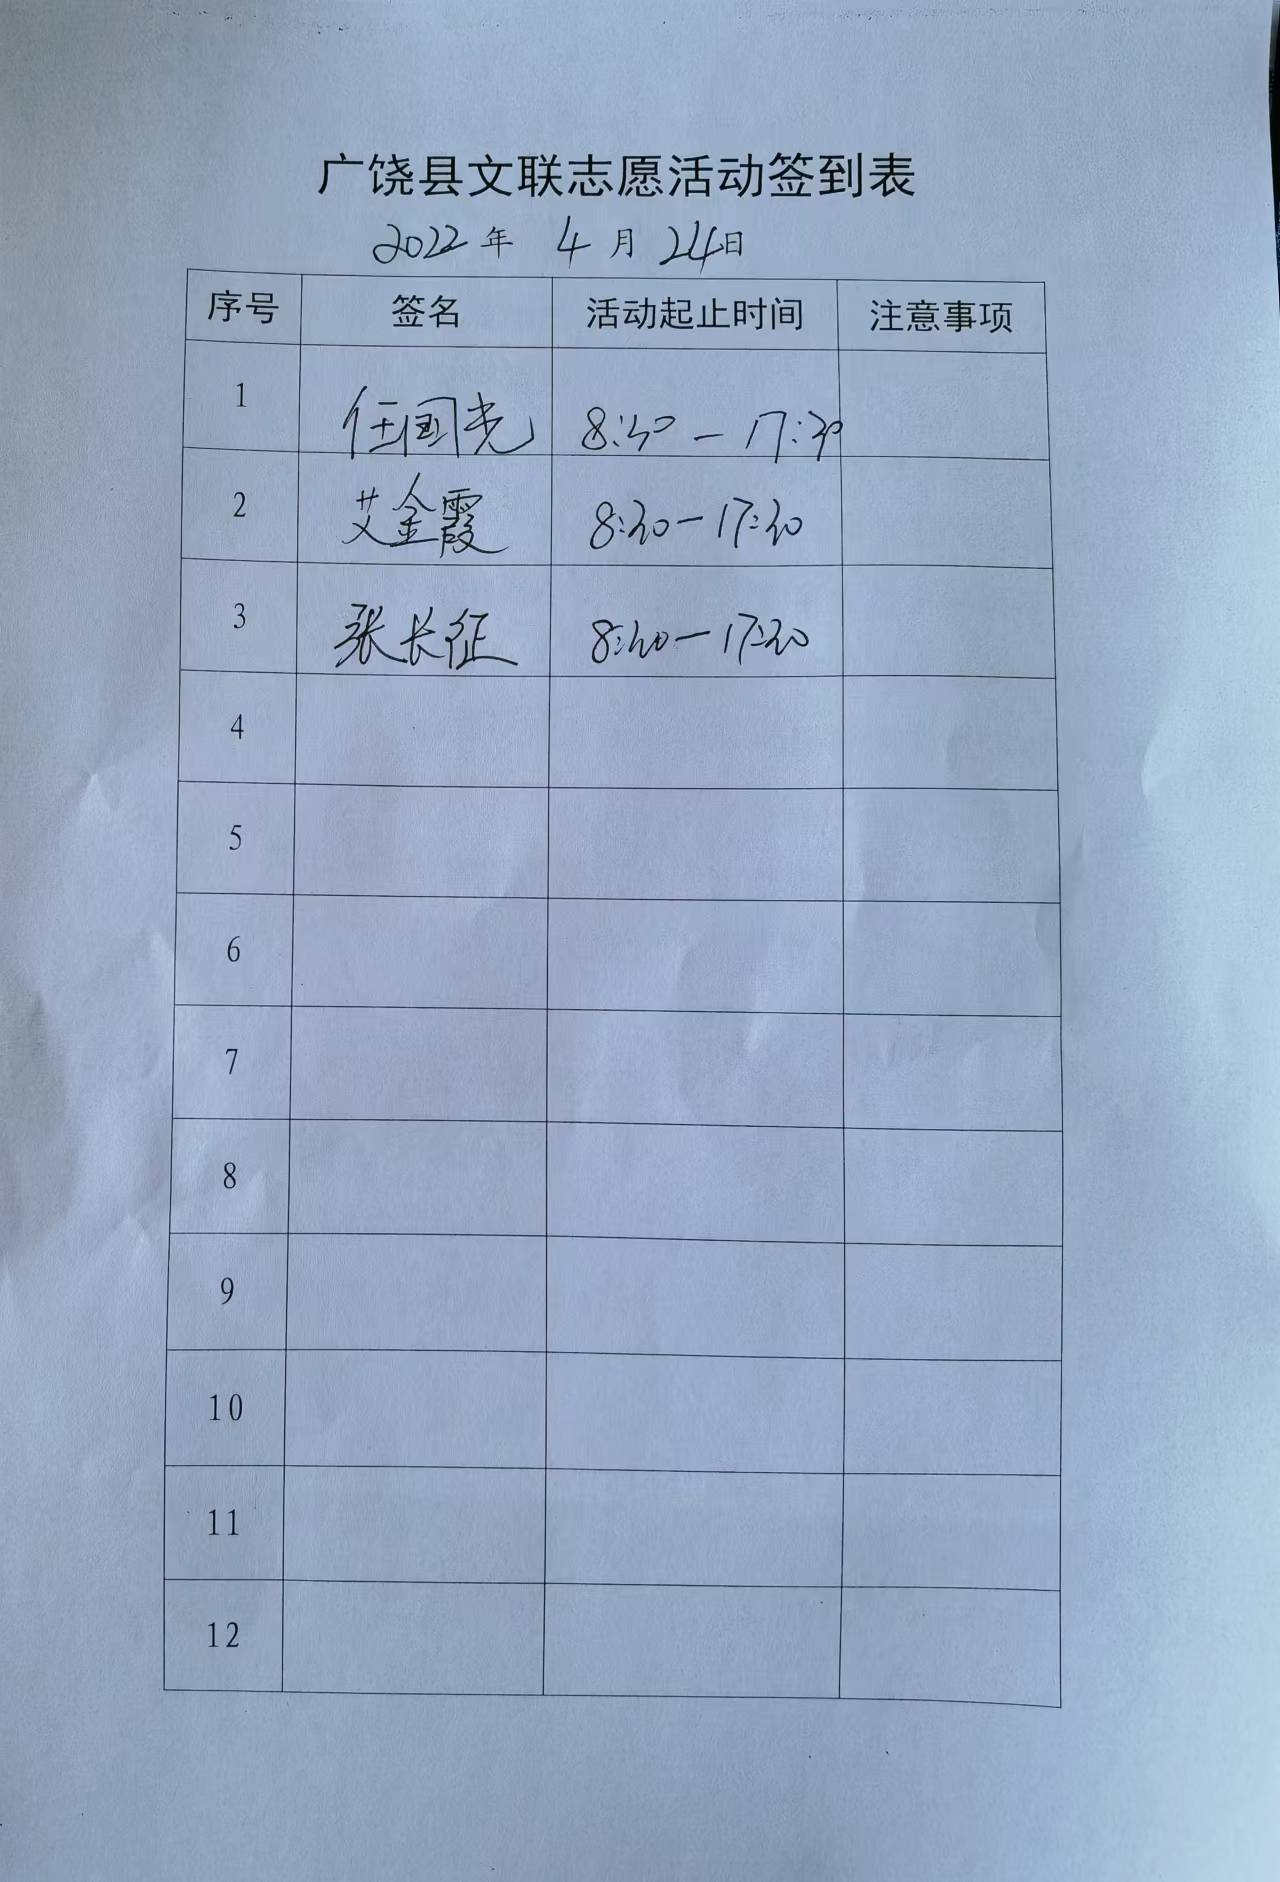 广饶县文联志愿活动签到表
2022年 4月24日
序号 签名 活动起止时间 注意事项
1 任国光 8:30—17:30
2 艾金霞 8:30—17:30
3 张长征 8:30—17:30
4
5
6
7
8
9
10
11
12